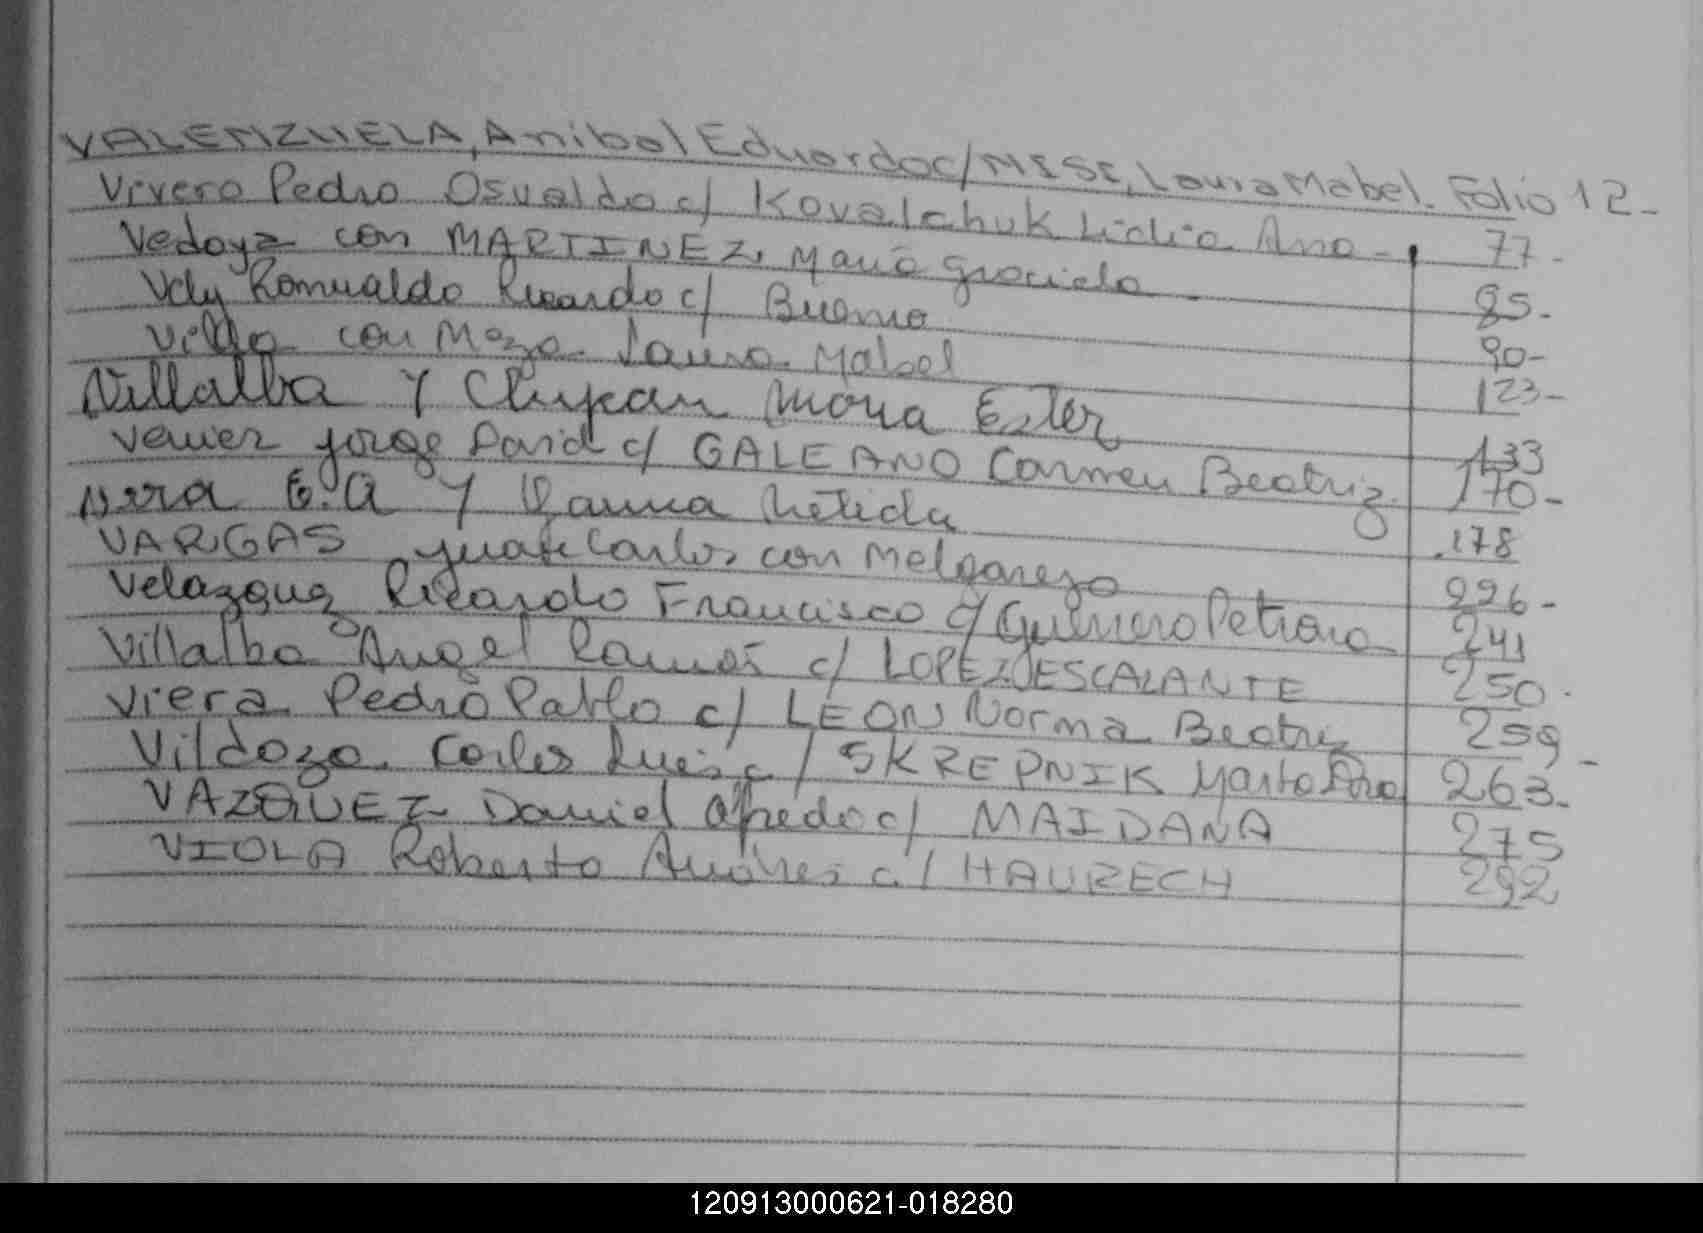 VALENZUELA, Anibal Eduardo c/ MISE, Laura Mabel. Folio 12-
Vivero Pedro Osvaldo c/ Kovalchuk Lidia Ana - 77-
Vedoya con MARTINEZ, Maria Graciela - 85-
Vely Romualdo Ricardo c/ Bueno 90-
Villa con Meza Laura Mabel 123-
Villalba Y Maria Ester 133
Venier Jorge David c/ GALEANO Carmen Beatriz 170-
Vera E.A Y 178
VARGAS Juan Carlos con Melgarejo 226-
Velazquez Ricardo Francisco c/ Guerrero Petrona 241
Villalba Angel Ramón c/ LOPEZ ESCALANTE 250-
Viera Pedro Pablo c/ LEON Norma Beatriz 259-
Vildozo Carlos Luis c/ SKREPNIK Marta Ana 263-
VAZQUEZ Daniel Alfredo c/ MAIDANA 275
VIOLA Roberto Andres c/ HAURECH 292
120913000621-018280